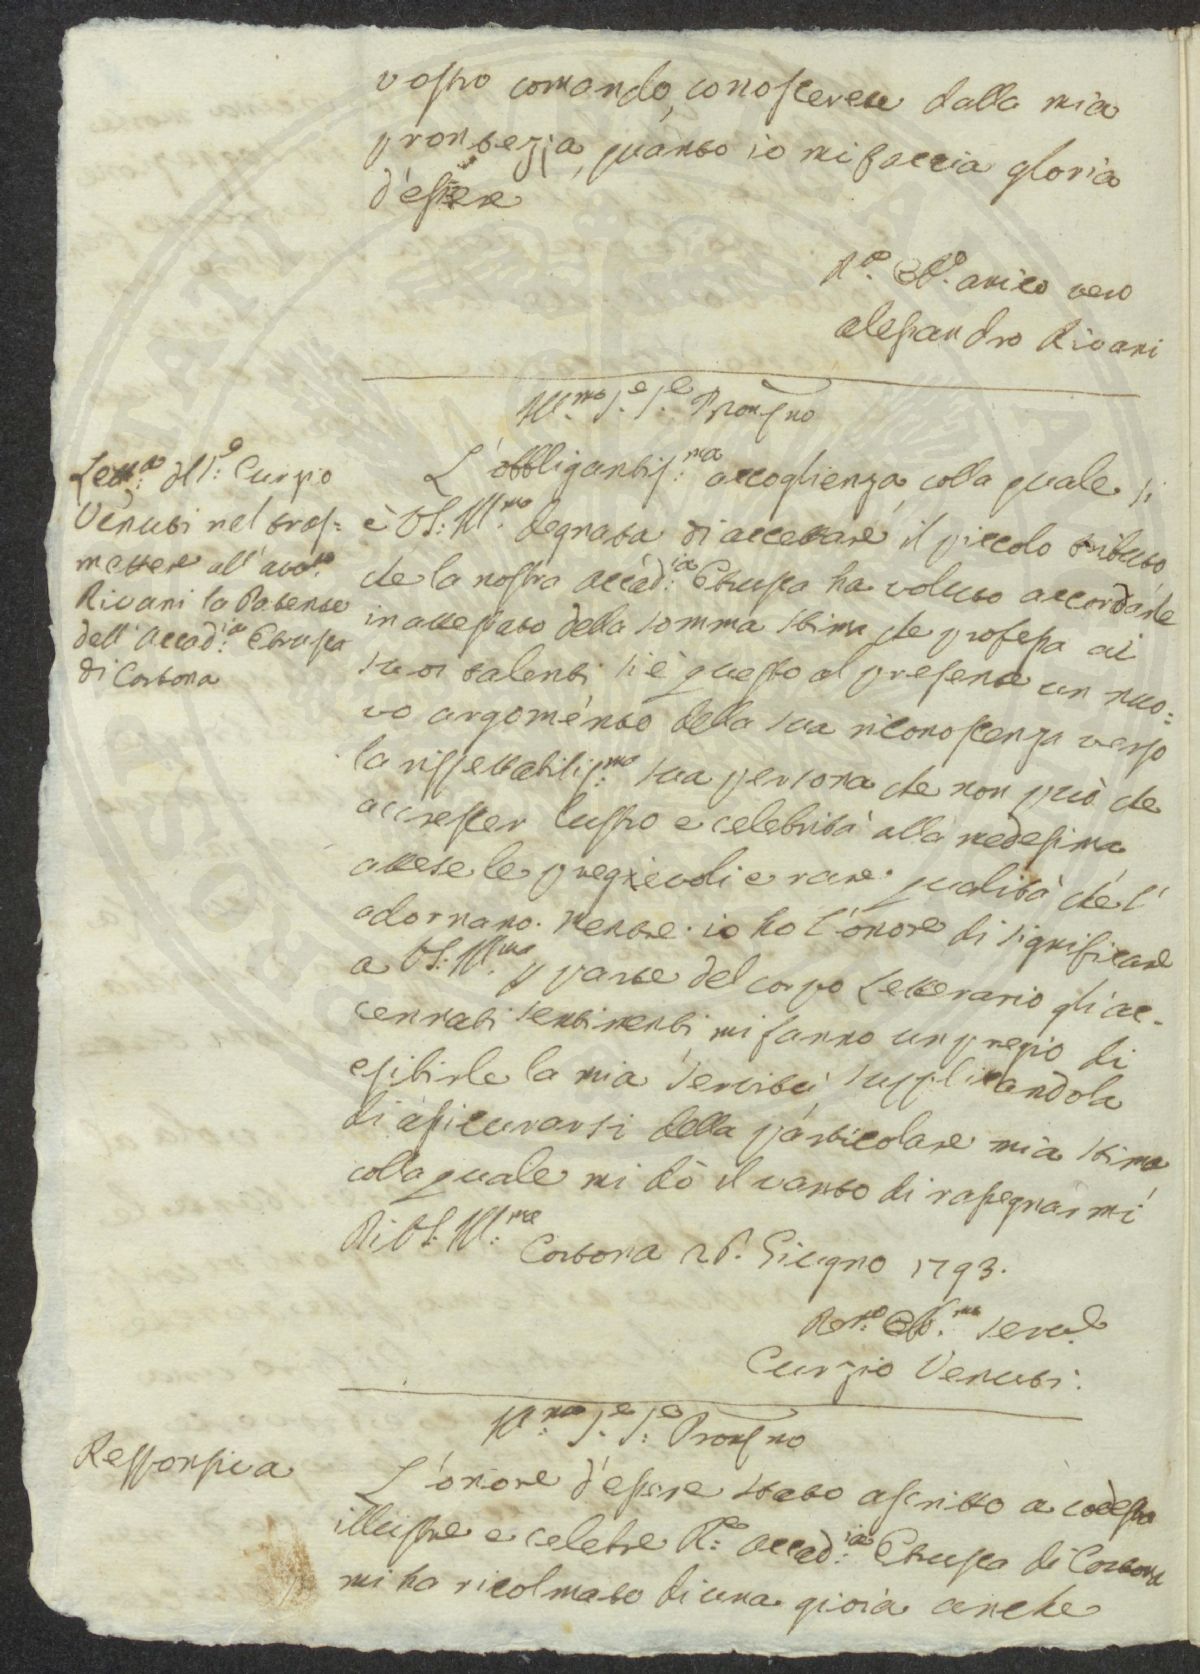 vostro comando, conoscerete dalla mia
prontezza, quanto io mi faccia gloria
d'essere
amico vero
Alessandro Rivani
Ill.mo S.e S.e Pron
Lett.a del S.e Curzio
Venuti nel tras=
mettere all'avv.to
Rivani la Patente
dell'Accad.ia Etrusca
di Cortona
L'obbligantis.ma accoglienza, colla quale si
è VS. Ill.ma degnata di accettare il piccolo tributo
che la nostra Accad.ia Etrusca ha voluto accordarle
in attestato della somma stima che professa ai
suoi talenti, si è questo al presente un nuo=
vo argomento della sua riconoscenza verso
la rispettabilis.ma sua persona che non può che
accrescer lustro e celebrità alla medesima
attese le pregievoli e rare qualità che l'
adornano. Mentre io ho l'onore di significare
a VS. Ill.ma p parte del corpo Letterario gli ac-
cennati sentimenti mi fanno un pregio di
esibirle la mia servitù, supplicandola
di assicurarsi della particolare mia stima
colla quale mi dò il vanto di rassegnarmi
Di VS. Ill.ma
Cortona Giugno 1793.
Curzio Venuti.
Ill.mo S.e S.e Pron
Responsiva
L'onore d'essere stato ascritto a codesta
illustre e celebre R. Accad.ia Etrusca di Cortona
mi ha ricolmato di una gioia anche